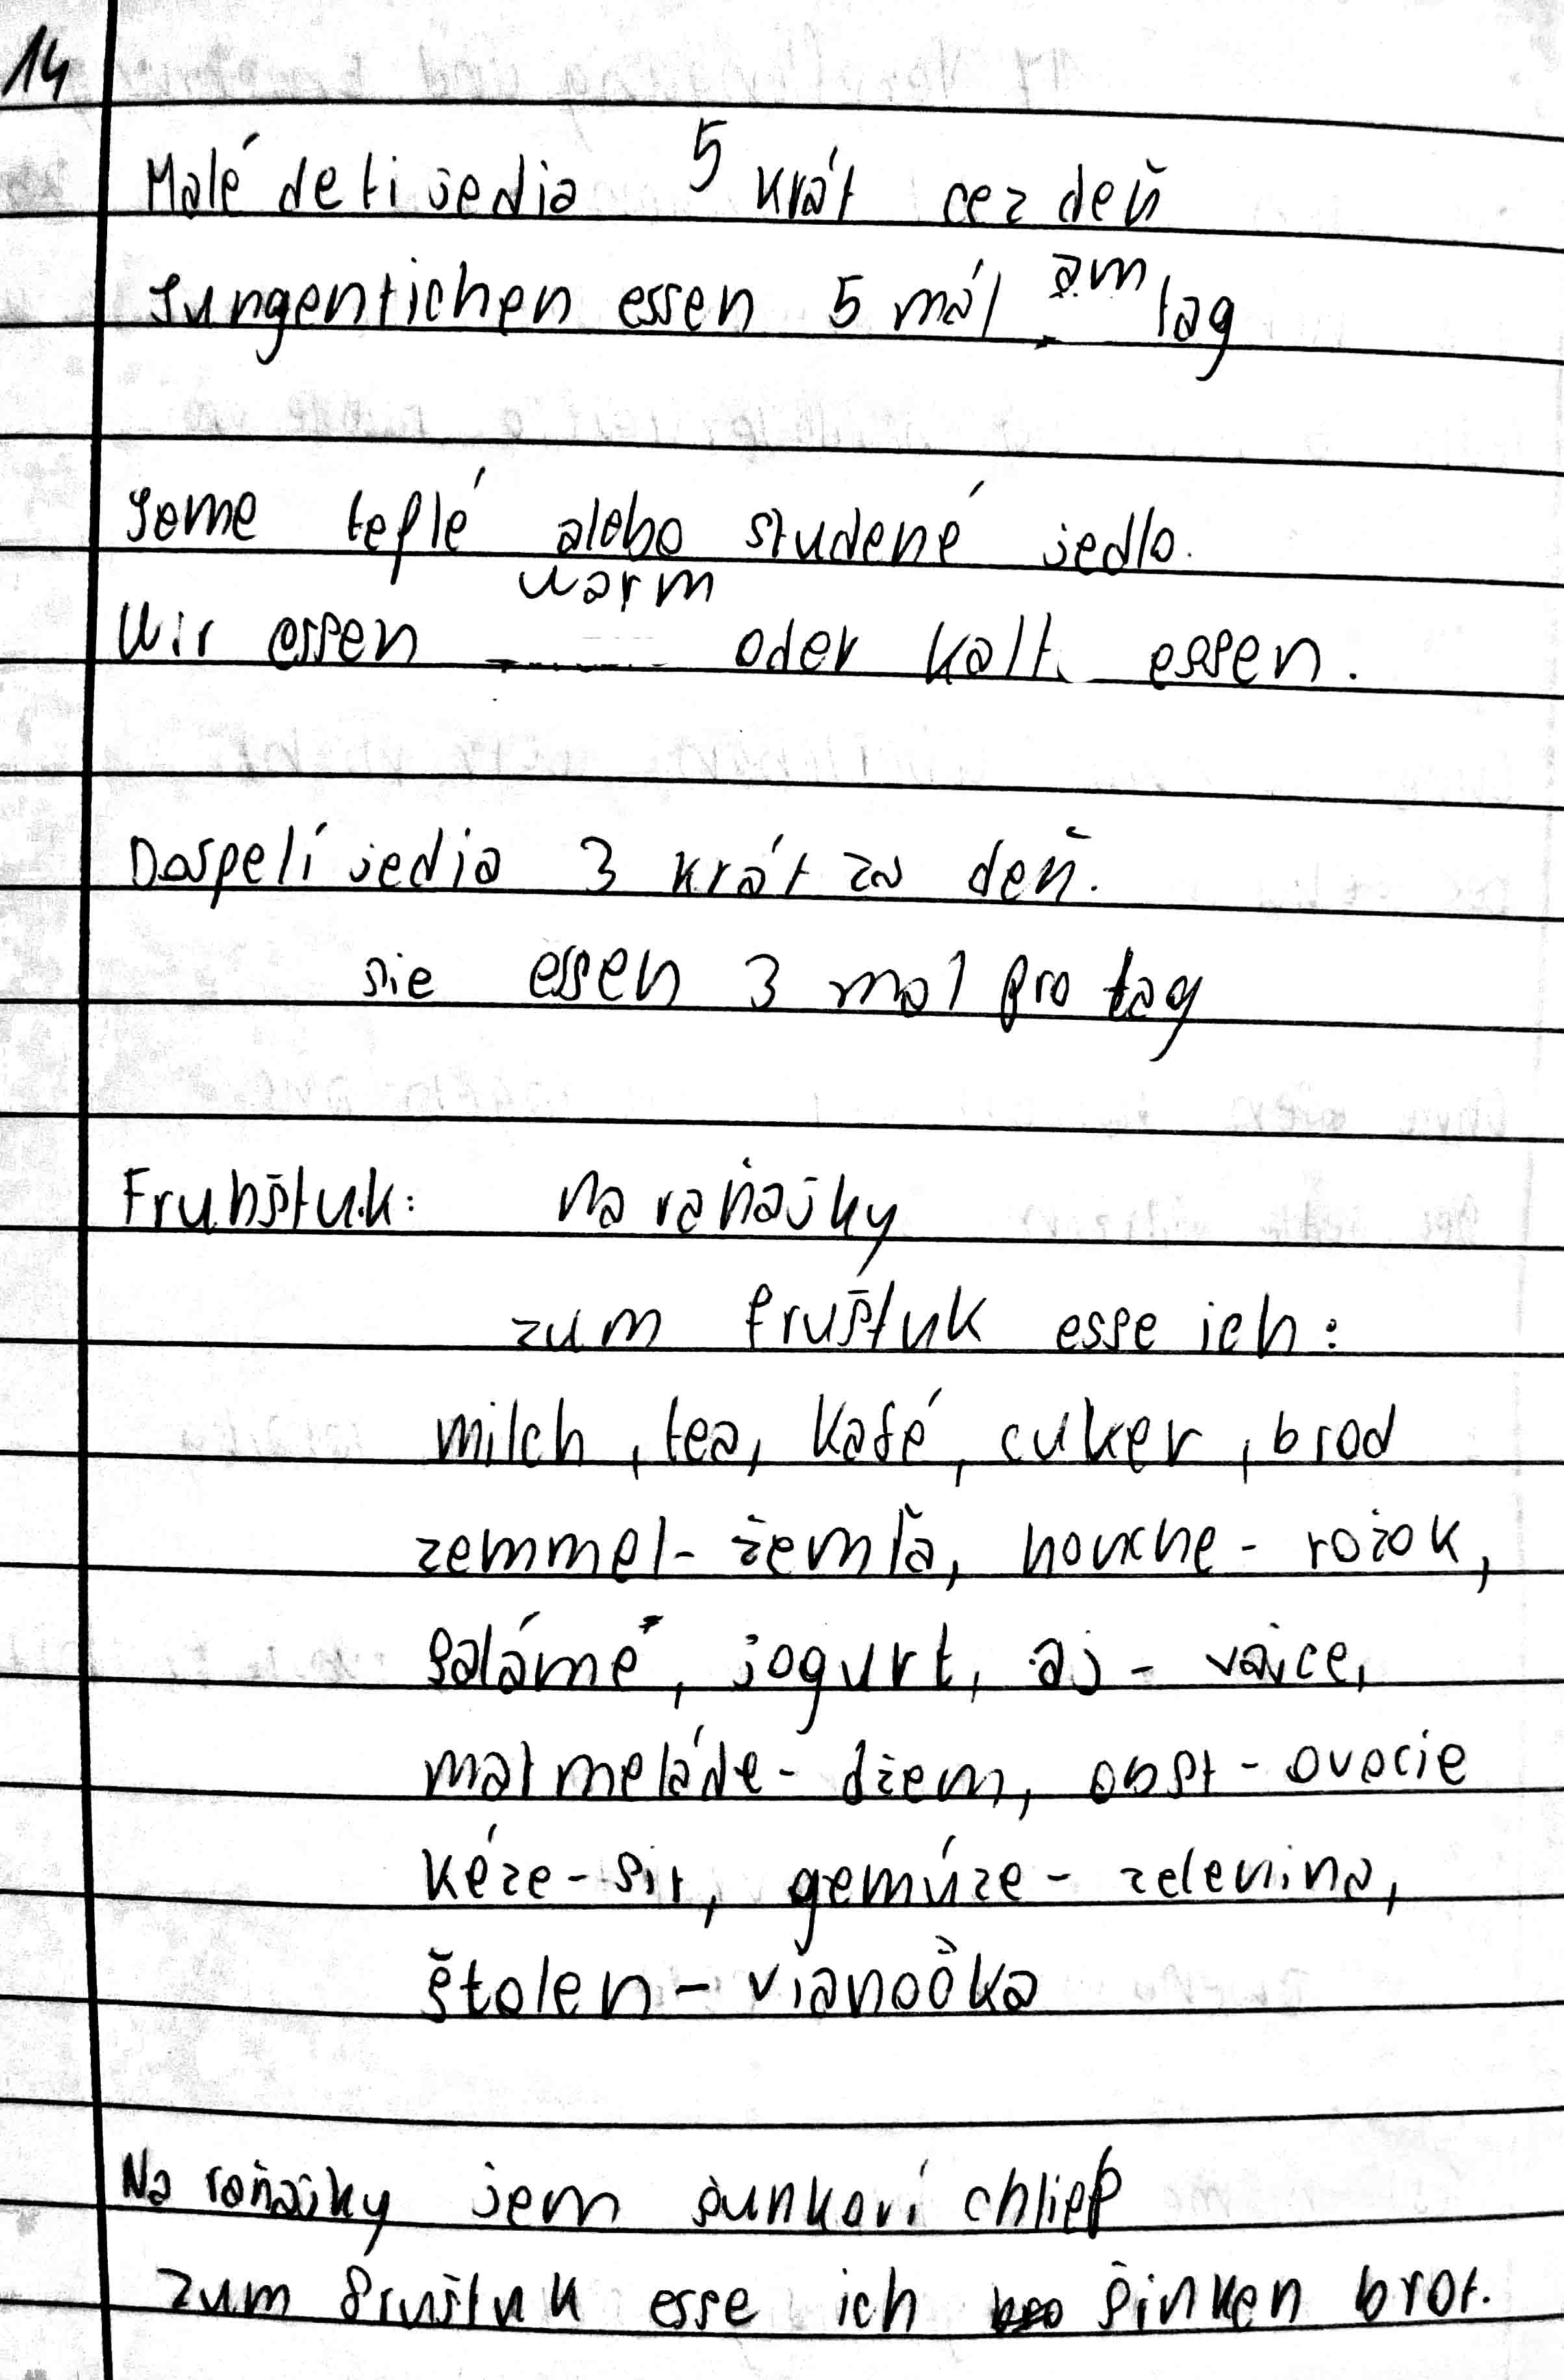 14
Malé deti jedia 5 krát cez deň
Jungentichen essen 5 mál am tag
Jeme teplé alebo studené jedlo.
Wir essen warm oder kalt essen.
Dospelí jedia 3 krát za deň.
sie essen 3 mal pro tag
Fruhštuk: Na raňajky
zum fruštuk esse ich:
milch, tea, kafé, cuker, brod
zemmel - žemľa, hournche - rožok,
salámé, jogurt, aj - vajce,
marmeláde - džem, obst - ovocie
kéze - sir, gemúze - zelenina,
štolen - vianočka
Na raňajky jem šunkoví chlieb
zum fruštuk esse ich šinken brot.